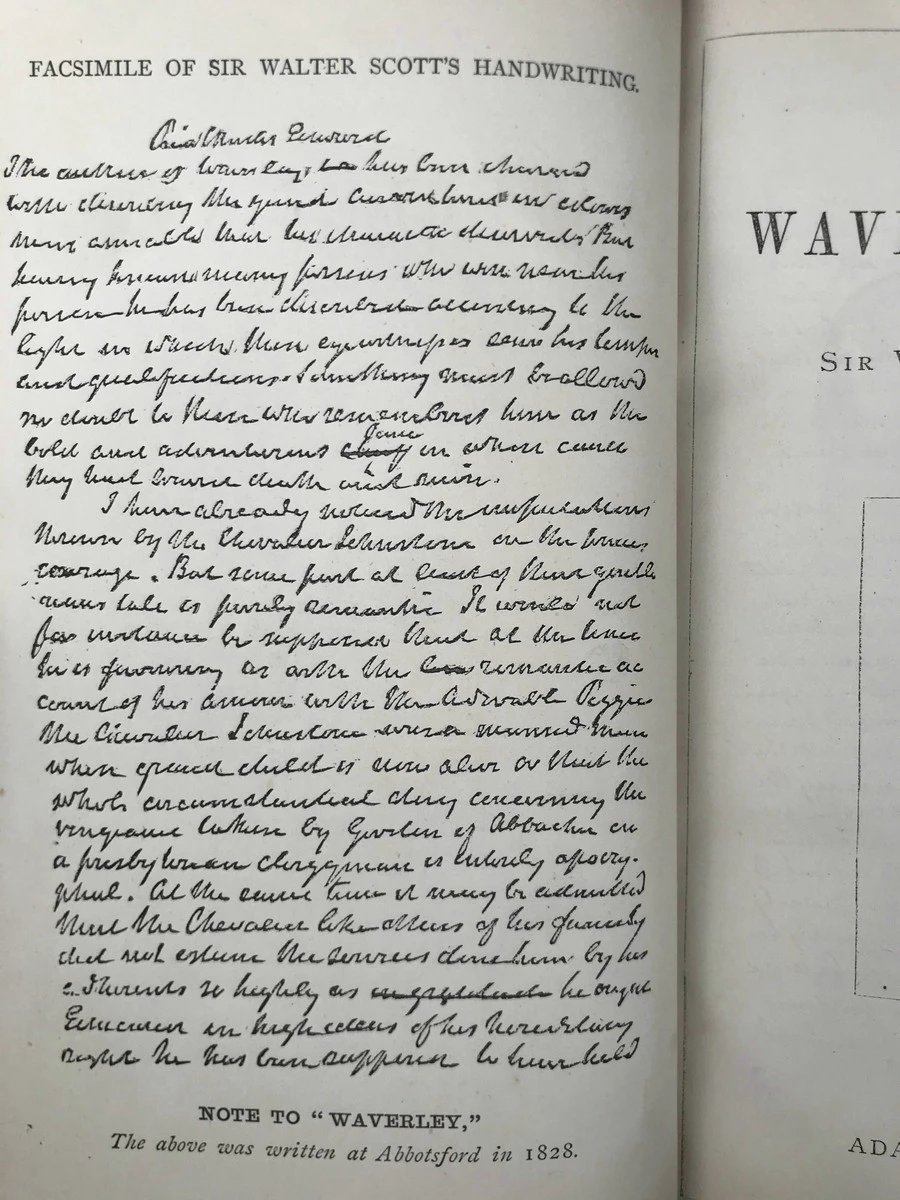 FACSIMILE OF SIR WALTER SCOTT'S HANDWRITING.
Prince Charles Edward
The author of Waverley has been charged
with colouring the young adventurer in colours
more amiable than his character deserved But
having known many persons who were near his
person he has been described according to the
light in which these eyewitnesses saw his temper
and qualifications. Something must be allowed
no doubt to those who remembered him as the
bold and adventurous Prince in whose cause
they had braved death and ruin.
I have already noticed the imputations
thrown by the Chevalier Johnstone on the princes
courage. But some part at least of that gentle
mans tale is purely romantic It would not
for instance be supposed that at the time
he is favouring us with the romantic ac
count of his amour with the Adorable Peggie
the Chevalier Johnstone was a married man
whose grand child is now alive or that the
whole circumstantial story concerning the
vengeance taken by Gordon of Abbachie on
a presbyterian clergyman is entirely apocry-
phal. At the same time it may be admitted
that the Chevalier like others of his family
did not esteem the services done him by his
adherents so highly as he ought
Educated in high ideas of his hereditary
right he has been supposed to have held
NOTE TO "WAVERLEY,"
The above was written at Abbotsford in 1828.
WAV
SIR
ADA